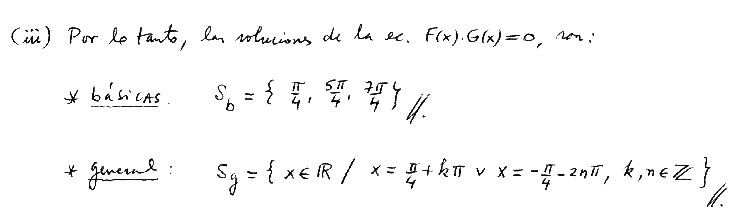 (iii) Por lo tanto, las soluciones de la ec. F(x).G(x)=0, son:
* básicas. S_b = { π/4, 5π/4, 7π/4 } //.
* general: S_g = { x ∈ ℝ / x = π/4 + kπ ∨ x = -π/4 - 2nπ, k, n ∈ ℤ } //.